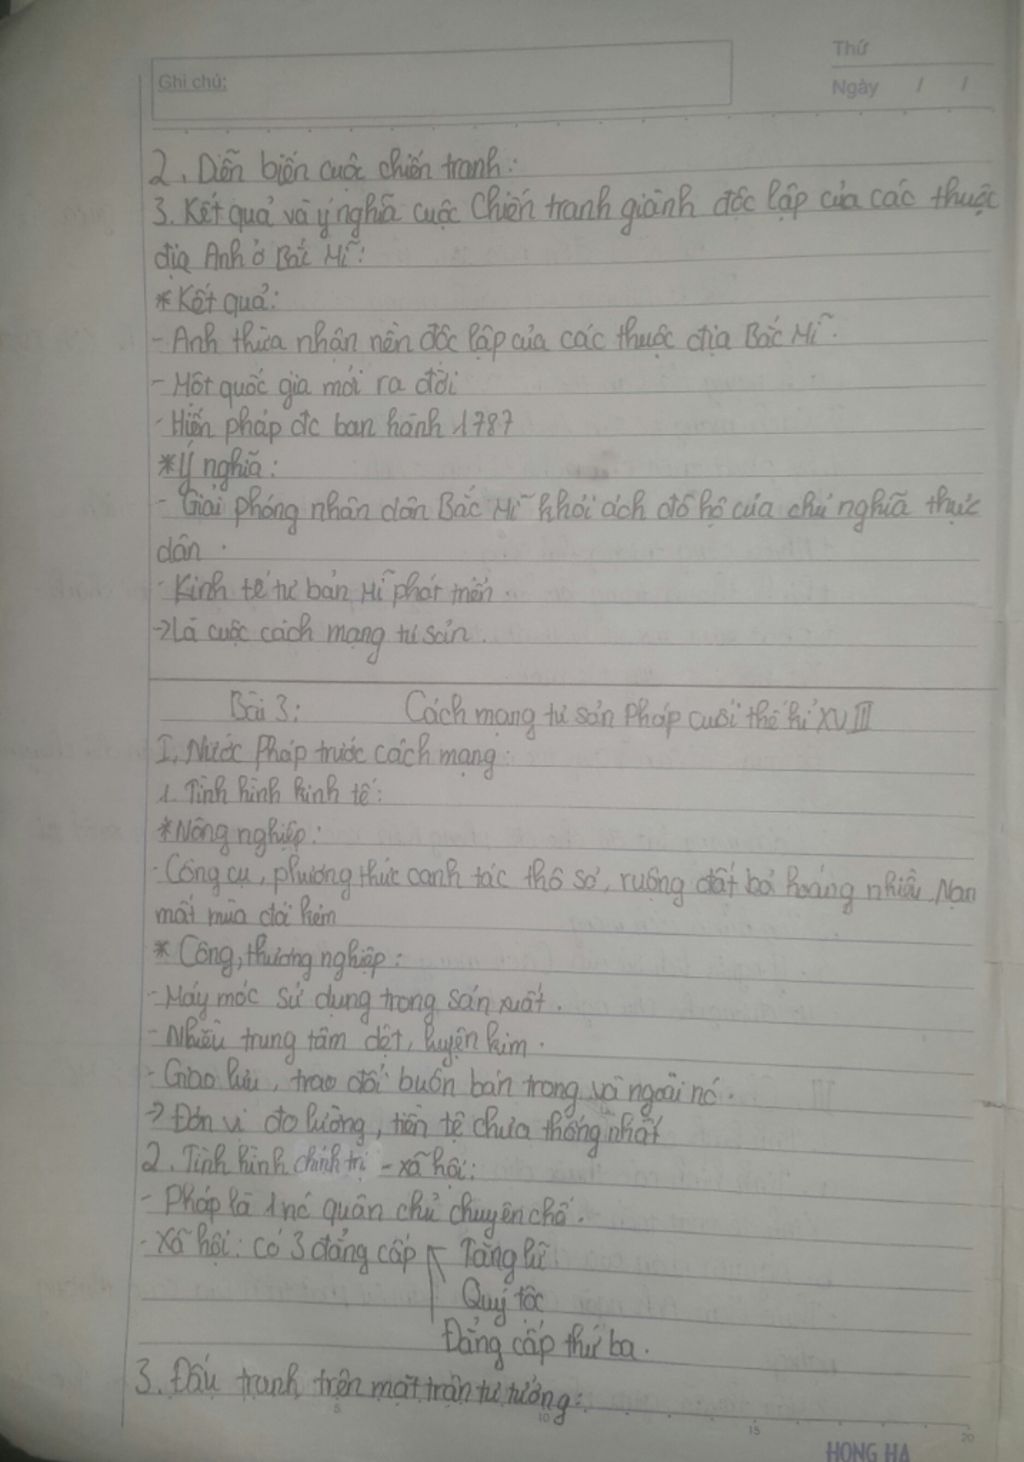 Ghi chú:
Thứ
Ngày / /
2. Diễn biến cuộc chiến tranh:
3. Kết quả và ý nghĩa cuộc Chiến tranh giành độc lập của các thuộc
địa Anh ở Bắc Mĩ:
*Kết quả:
- Anh thừa nhận nền độc lập của các thuộc địa Bắc Mĩ.
- Một quốc gia mới ra đời
- Hiến pháp đc ban hành 1787
*Ý nghĩa:
- Giải phóng nhân dân Bắc Mĩ khỏi ách đô hộ của chủ nghĩa thực
dân.
- Kinh tế tư bản Mĩ phát triển.
→Là cuộc cách mạng tư sản.
Bài 3: Cách mạng tư sản Pháp cuối thế kỉ XVIII
I, Nước Pháp trước cách mạng:
1. Tình hình kinh tế:
*Nông nghiệp:
- Công cụ, phương thức canh tác thô sơ, ruộng đất bỏ hoang nhiều. Nạn
mất mùa đói kém
* Công, thương nghiệp:
- Máy móc sử dụng trong sản xuất.
- Nhiều trung tâm dệt, luyện kim.
- Giao lưu, trao đổi buôn bán trong và ngoài nc.
→ Đơn vị đo lường, tiền tệ chưa thống nhất
2. Tình hình chính trị - xã hội:
- Pháp là 1 nc quân chủ chuyên chế.
- Xã hội: có 3 đẳng cấp Tăng lữ
Quý tộc
Đẳng cấp thứ ba.
3. Đấu tranh trên mặt trận tư tưởng:
5 10 15 20
HONG HA